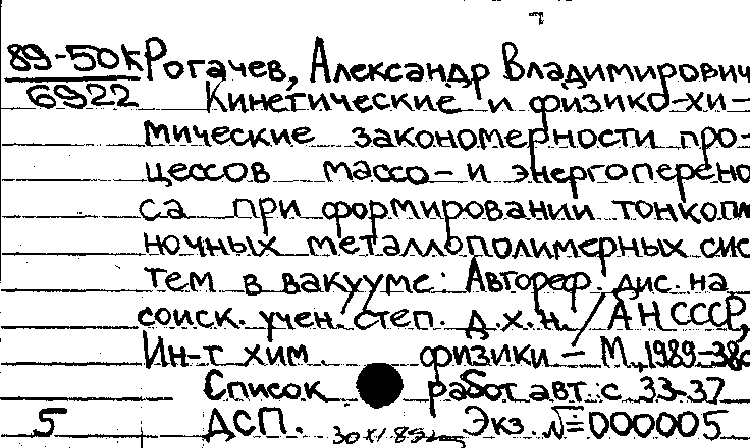 89-50к Рогачев, Александр Владимирович
6922 Кинетические и физико-хи-
мические закономерности про-
цессов массо- и энергоперено
са при формировании тонкопле
ночных металлополимерных сис
тем в вакууме: Автореф. дис. на
соиск. учен. степ. д.х.н. / АН СССР,
Ин-т хим. физики – М., 1989–38с
Список работ авт.: с. 33-37
5 ДСП. Экз. №=000005